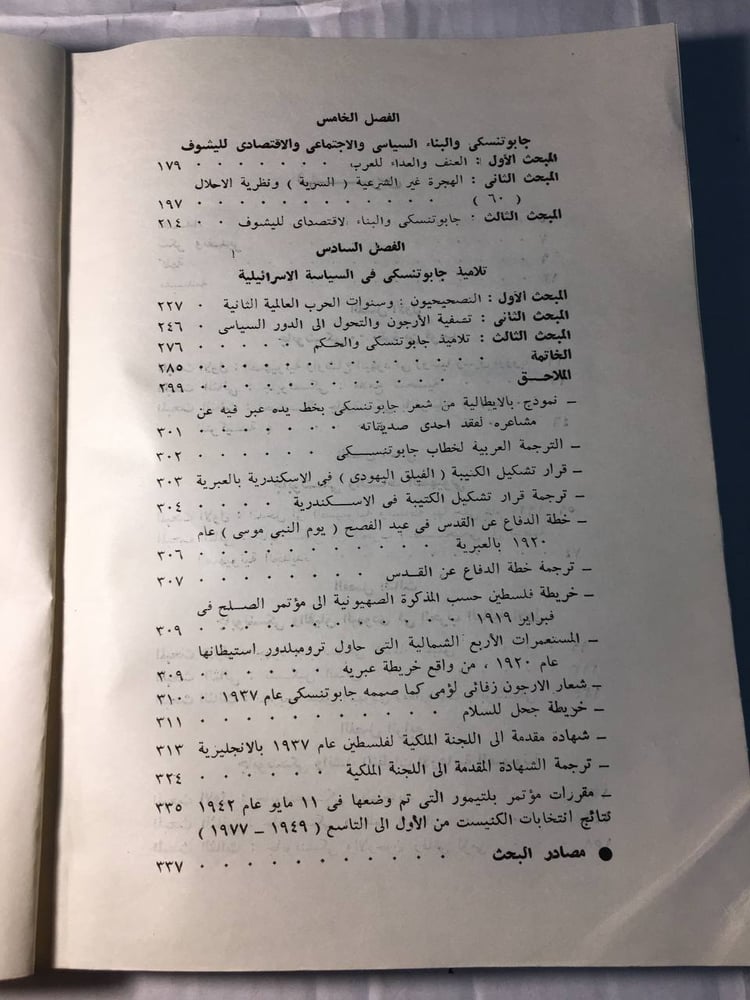 الفصل الخامس
جابوتنسكى والبناء السياسى والاجتماعى والاقتصادى لليشوف
المبحث الأول : العنف والعداء للعرب . . . . . . . ١٧٩
المبحث الثانى : الهجرة غير الشرعية ( السرية ) ونظرية الاحلال
( ٦٠ ) . . . . . . . . . . . ١٩٧
المبحث الثالث : جابوتنسكى والبناء لاقتصداى لليشوف . . ٢١٤
الفصل السادس
تلاميذ جابوتنسكى فى السياسة الاسرائيلية
المبحث الأول : التصحيحيون وسنوات الحرب العالمية الثانية . ٢٢٧
المبحث الثانى : تصفية الأرجون والتحول الى الدور السياسى . ٢٤٦
المبحث الثالث : تلاميذ جابوتنسكى والحكم . . . . ٢٧٦
الخاتمة . . . . . . . . . . . ٢٨٥
الملاحـق . . . . . . . . . . . ٢٩٩
ـ نموذج بالايطالية من شعر جابوتنسكى بخط يده عبر فيه عن
مشاعره لفقد احدى صديقاته . . . . . . ٣٠١
ـ الترجمة العربية لخطاب جابوتنسـكى . . . . . ٣٠٢
ـ قرار تشكيل الكتيبة ( الفيلق اليهودى ) فى الاسكندرية بالعبرية ٣٠٣
ـ ترجمة قرار تشكيل الكتيبة فى الاسـكندرية . . . . ٣٠٤
ـ خطة الدفاع عن القدس فى عيد الفصح ( يوم النبى موسى ) عام
١٩٢٠ بالعبرية . . . . . . . . . ٣٠٦
ـ ترجمة خطة الدفاع عن القـدس . . . . . . . ٣٠٧
ـ خريطة فلسطين حسب المذكرة الصهيونية الى مؤتمر الصـلح فى
فبراير ١٩١٩ . . . . . . . . . ٣٠٩
ـ المستعمرات الأربع الشمالية التى حاول ترومبلدور استيطانها
عام ١٩٢٠ ، من واقع خريطة عبريه . . . . . ٣٠٩
ـ شعار الارجون زفائى لؤمى كما صممه جابوتنسكى عام ١٩٣٧ . ٣١٠
ـ خريطة جحل للسلام . . . . . . . . . . ٣١١
ـ شهادة مقدمة الى اللجنة الملكية لفلسطين عام ١٩٣٧ بالانجليزية ٣١٣
ـ ترجمة الشهادة المقدمة الى اللجنة الملكية . . . . . . ٣٢٤
ـ مقررات مؤتمر بلتيمور التى تم وضعها فى ١١ مايو عام ١٩٤٢ ٣٣٥
نتائج انتخابات الكنيست من الأول الى التاسع ( ١٩٤٩ ـ ١٩٧٧ )
● مصادر البحث . . . . . . . . . . ٣٣٧